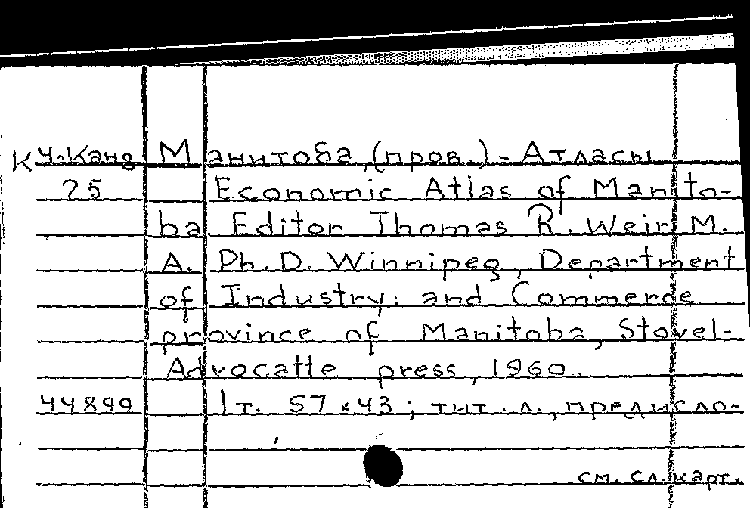 К Ч-Канд Манитоба, (пров.) - Атласы
25 Economic Atlas of Manito-
ba Editor Thomas R. Weir M.
A. Ph. D. Winnipeg, Department
of Industry: and Commerce
province of Manitoba, Stovel-
Advocatte press, 1960.
44899 1 т. 57×43; тит. л., предисло-
см. сл. карт.